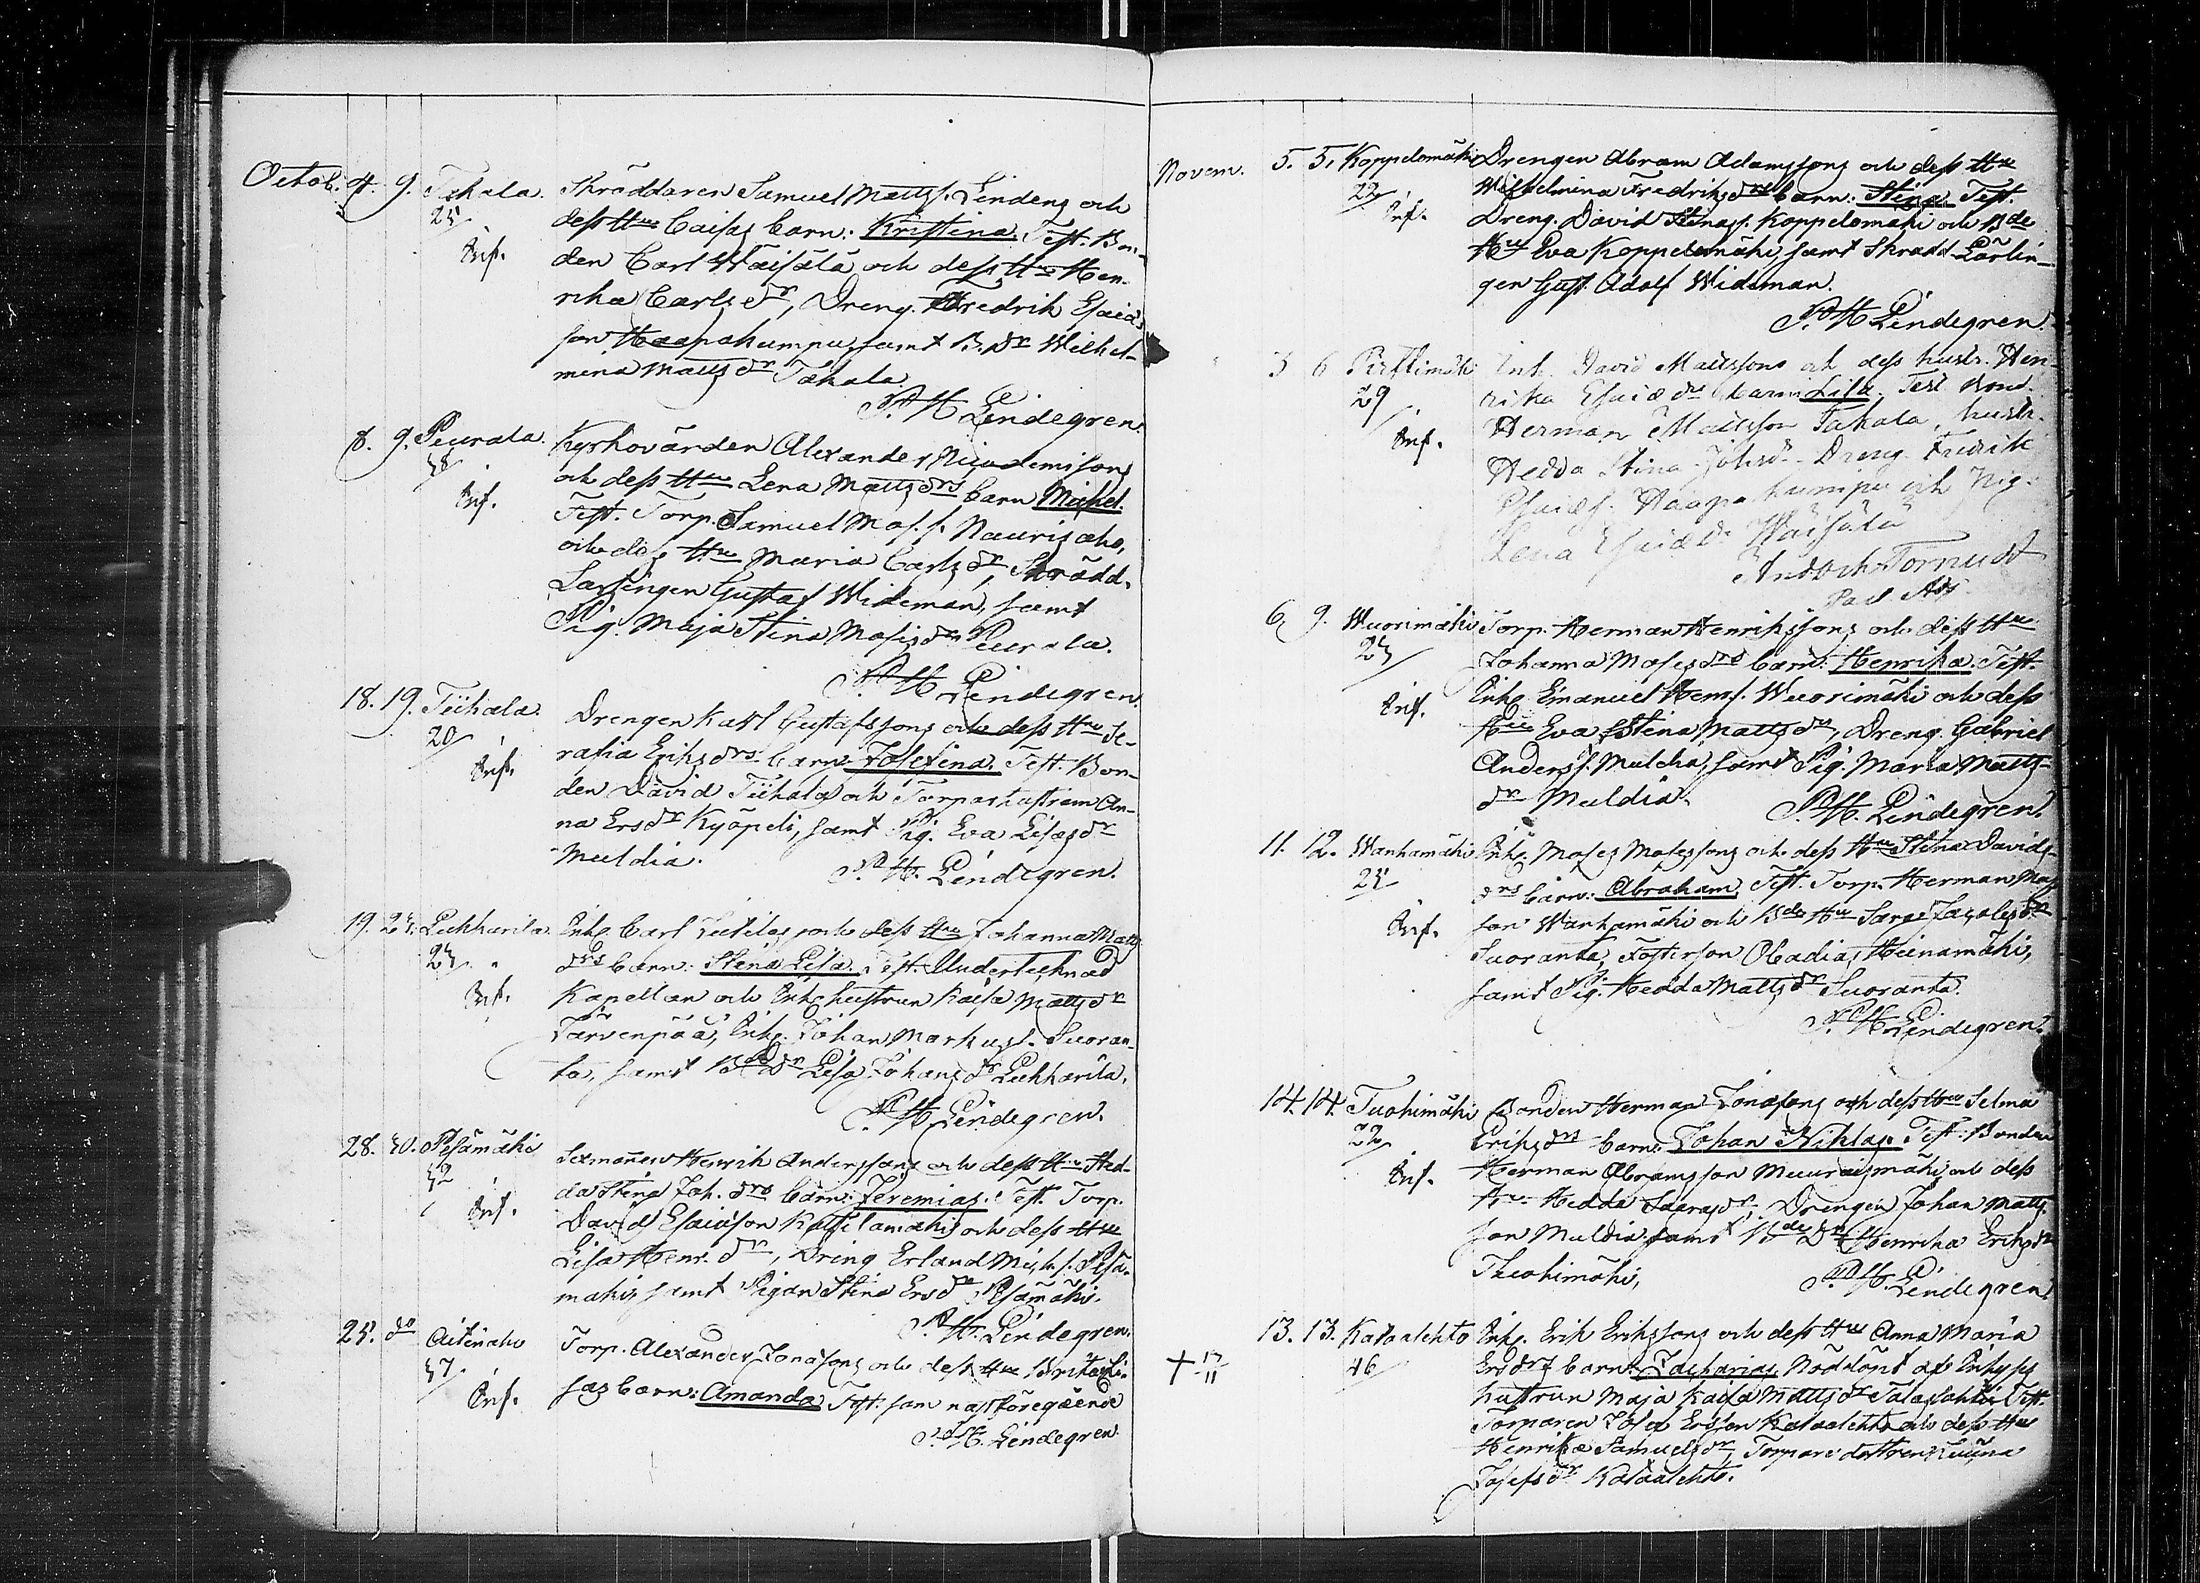 Octob. 4. 9. Takala. Skräddaren Samuel Mattss. Lindens och
25 dess Hu Caisas barn: Kristina. Test. Bon-
Inf. den Carl Wäisälä och dess Hu Hen-
rika Carlsdr, Dreng. Fredrik Esaias-
son Haapakumpu, samt B. Dr Wilhel-
mina Mattsdr Takala.
P. H. Lindegren.
8. 9. Peurala. Kyrkovärden Alexander Nicodemisons
38 och dess Hu Lena Mattsdrs barn Michel.
Inf. Test. Torp. Samuel Mos. s. Naurisaho,
och dess Hu Maria Carlsdr, Skrädd.
Lärlingen Gustaf Wideman, samt
Pig. Maja Stina Mosisdr Peurala.
P. H. Lindegren.
18. 19. Tiihala. Drengen Karl Gustafssons och dess Hu Se-
20 rafia Eriksdrs barn: Josefina. Test. Bon-
Inf. den David Tiihala och Torparhustrun An-
na Ersdr Kyöpeli, samt Pig. Eva Lisasdr
Muldia.
P. H. Lindegren.
19. 24. Lukkarila. Inh. Carl och dess Hu Johanna Matts
23 drs barn: Stina Lisa. Test. Undertecknad
Inf. Kapellan och Inh. hustrun Kaisa Mattsdr
Järvenpää, Inh. Johan Markuss. Suoran-
ta, samt Bde Dr Lisa Johansdr Lukkarila.
P. H. Lindegren.
28. 30. Pesämäki Sexmannen Henrik Anderssons och dess Hu Hed-
32 da Stina Joh. drs barn: Jeremias. Test. Torp.
Inf. David Esaiason Kattilamäki och dess Hu
Lisa Henr. dr, Dreng Erland Mich. s. Pesä-
mäki, samt Pigan Stina Ersdr Pesämäki.
P. H. Lindegren.
25. do Aitinaho Torp. Alexander Jonasons och dess Hu Brita
37 sas barn: Amanda Test. som nästföregående
Inf. P. H. Lindegren.
Novem. 5. 5. Koppelomäki Drengen Abram Adamssons och dess Hu
22 Wilhelmina Fredriksdrs barn: Stina. Test.
Inf. Dreng. David Koppelomäki och Bde
Hu Eva Koppelomäki, samt Skrädd. Lärlin-
gen Gust. Adolf Wideman.
P. H. Lindegren.
3 6 Pirttimäki Inh. David Mattssons och dess hustr. Hen-
29 rika Esaiædrs barn Lisa. Test Bond.
Inf. Herman Mattsson Takala, hustr.
Hedda Stina Johsdr. Dreng. Fredrik
Esaiæs. Haapakumpu och Pig.
Lena Esaiædr Wäisälä
Ant. och. Tornudd
Past. Adj.
6. 9. Wuorimäki Torp. Herman Henrikssons och dess Hu
23 Johanna Mosesdrs barn: Henrika. Test.
Inf. Inh. Emanuel Herms. Wuorimäki och dess
Hu Eva Stina Mattsdr, Dreng. Gabriel
Anderss. Mulcha, samt Pig. Maria Matts-
dr Muldia.
P. H. Lindegren.
11. 12. Wanhamäki Inh. Moses Mosessons och dess Hu Stina Davids-
25 drs barn: Abraham. Test. Torp. Herman Mos
Inf. son Wanhamäki och Bde Hu Sara Jacobsdr
Suoranta, Fosterson Obadias Heinamäki,
samt Pig. Hedda Mattsdr Suoranta.
P. H. Lindegren.
14. 14. Tuohimäki Bonden Herman Jonasons och dess Hu Selma
22 Eriksdrs barn: Johan Niklas. Test. Bonden
Inf. Herman Abramsson Muuraismäki och dess
Hu Hedda Isaaksdr, Drengen Johan Matts
son Muldia samt Bde Dr Henrika Eriksdr
Tuohimäki,
P. H. Lindegren.
13. 13. Kataalehto Inh. Erik Erikssons och dess Hu Anna Maria
+ 17/11 46 Ersdrs barn: Zacharias, Nöddöpt af Inhyses
hustrun Maja Kaisa Mattsdr Test.
Torparen Josef Ersson Kataalehto och dess Hu
Henrika Samuelsdr, Torpare dottren
Josefsdr Kataalehto.